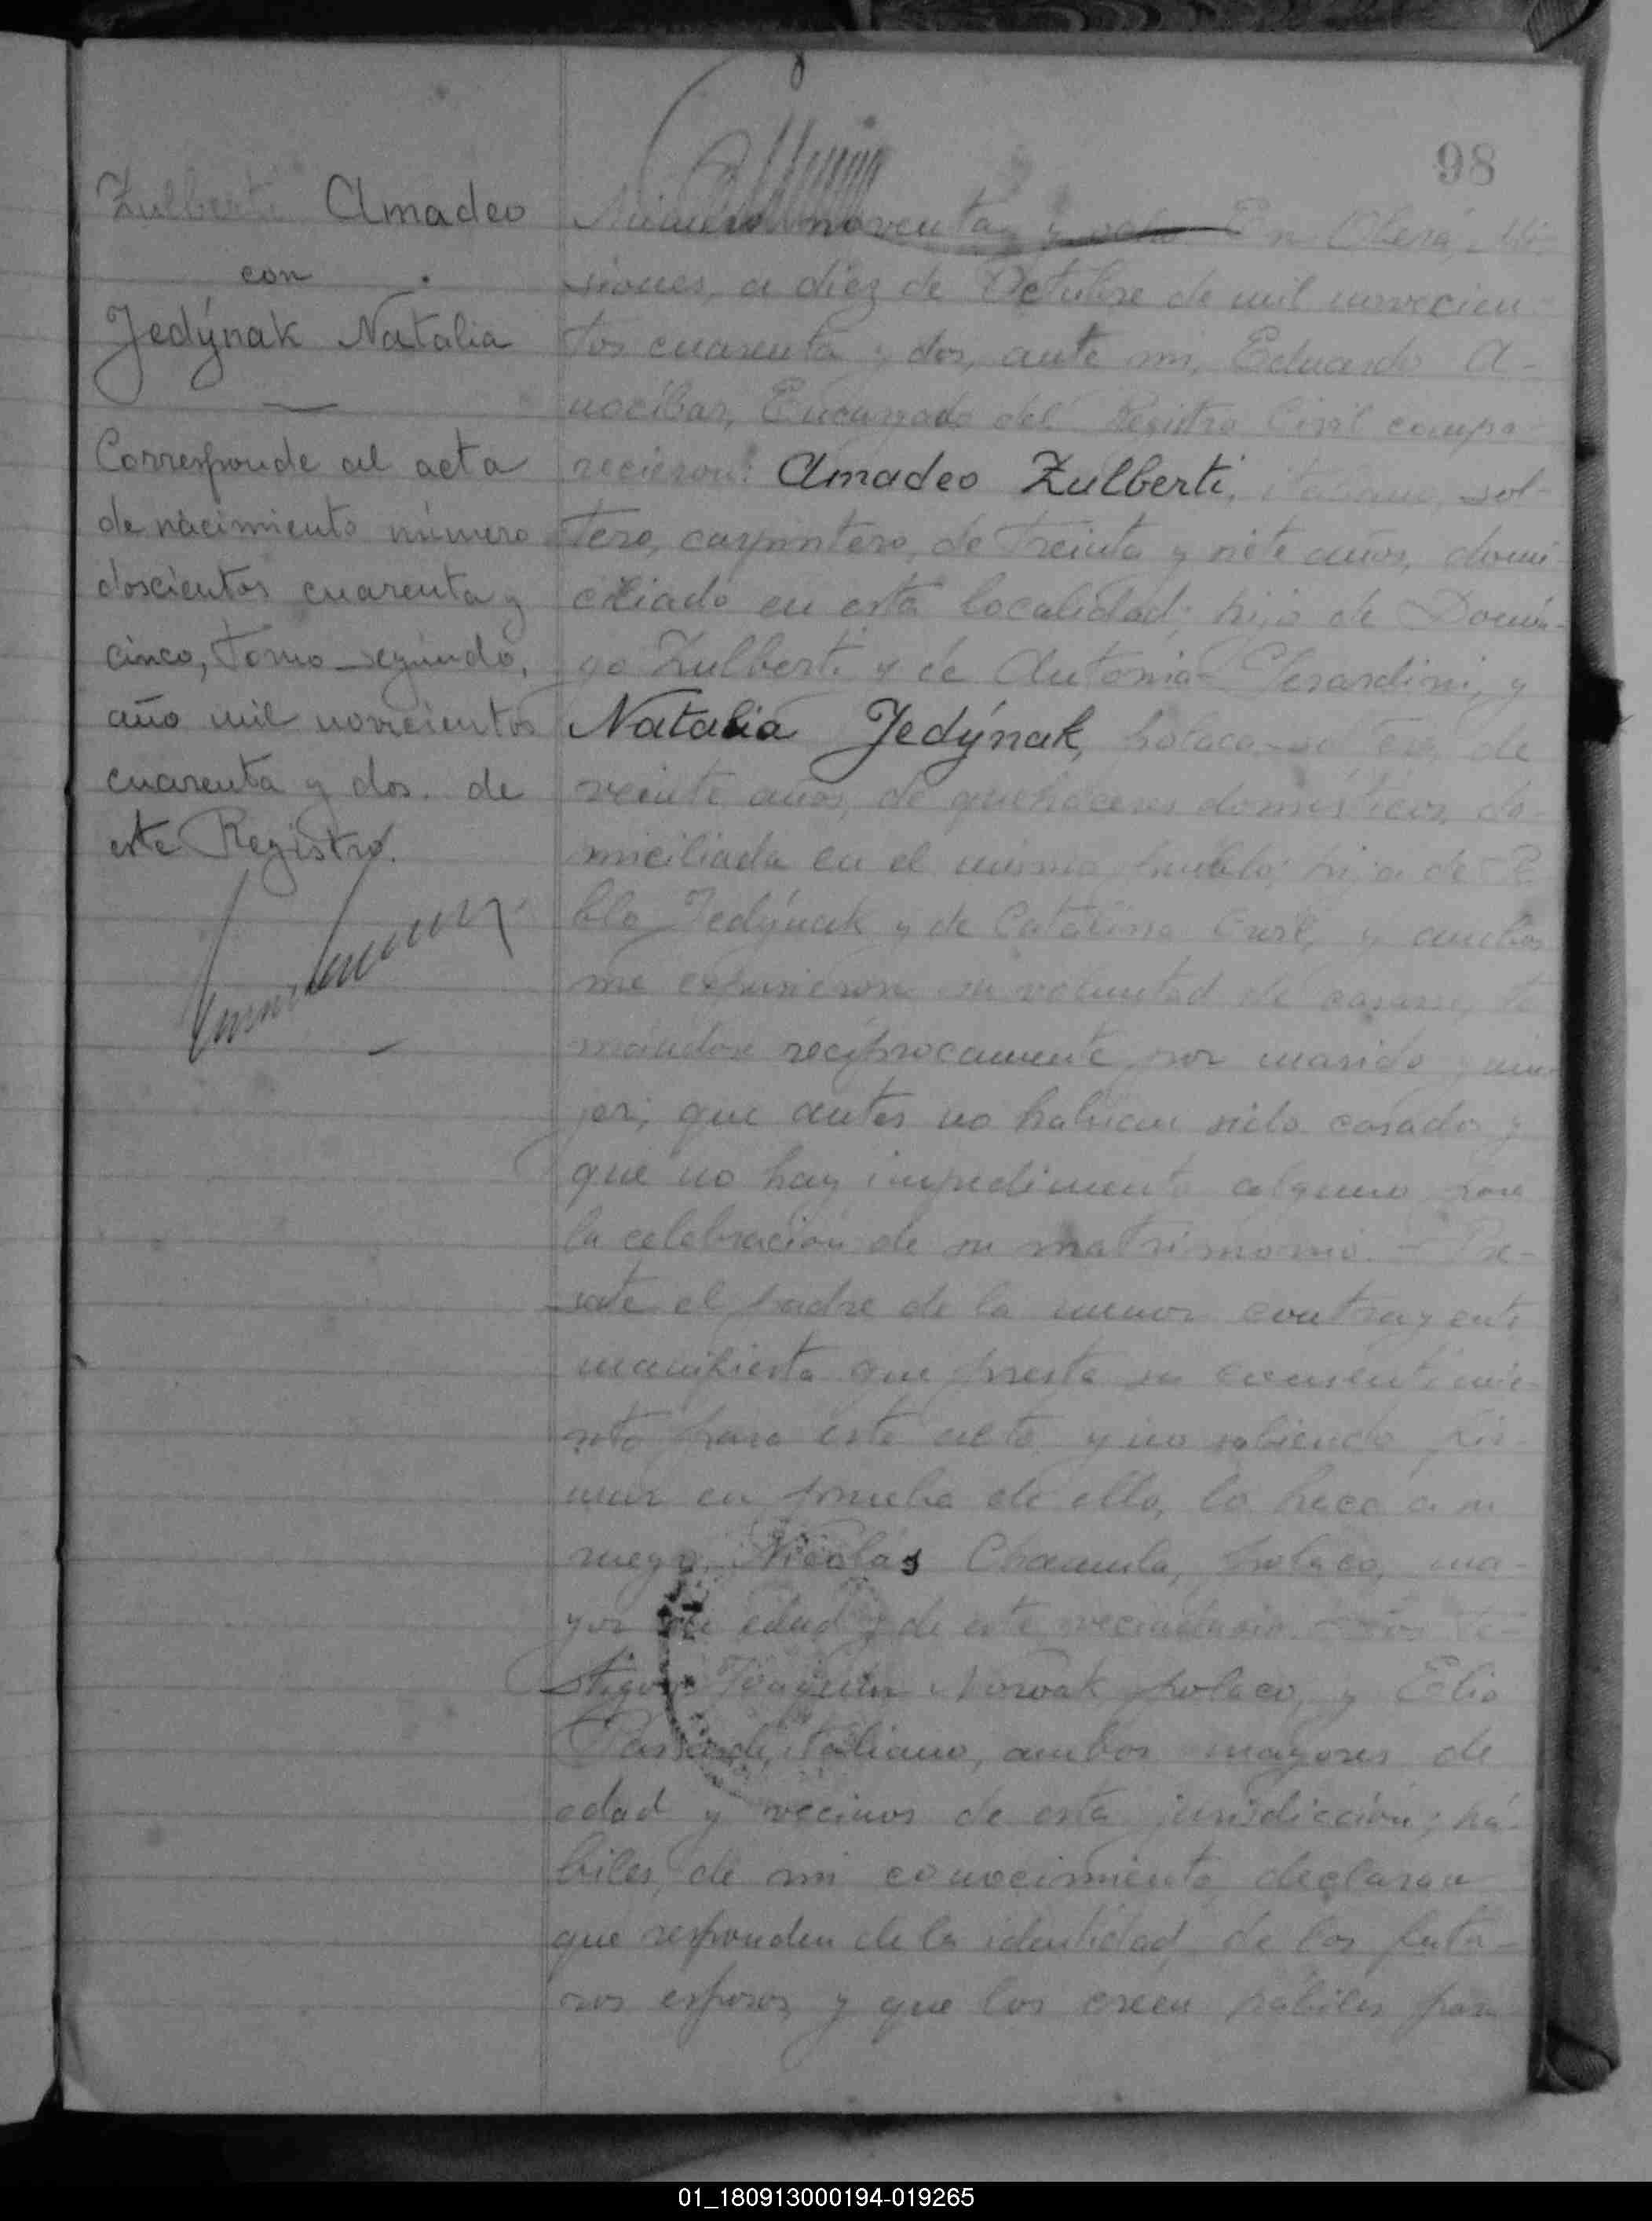 98
Zulberti Amadeo
con
Jedýnak Natalia
Corresponde al acta
de nacimiento número
doscientos cuarenta y
cinco, tomo segundo,
año mil novecientos
cuarenta y dos. de
este Registro.
Número noventa y ocho En Oberá, Mi-
siones, a diez de Octubre de mil novecien-
tos cuarenta y dos, ante mi, Eduardo A-
nocibar, Encargado del Registro Civil compa-
recieron: Amadeo Zulberti, italiano, sol-
tero, carpintero, de treinta y siete años, domi
ciliado en esta localidad; hijo de Domin-
go Zulberti y de Antonia Gerardini, y
Natalia Jedýnak, polaca, soltera, de
veinte años, de quehaceres domésticos, do-
miciliada en el mismo pueblo; hija de Pa
blo Jedýnak y de Catalina y ambos
me expusieron su voluntad de casarse, to
mandose recíprocamente por marido y mu-
jer; que antes no habían sido casados y
que no hay impedimento alguno para
la celebración de su matrimonio. - Pre-
sente el padre de la menor contrayente
manifiesta que presta su consentimie-
nto para este acto y no sabiendo fir-
mar en prueba de ello, lo hace a su
ruego Nicolás polaco, ma-
yor de edad y de este vecindario. - Los te-
stigos Joaquin Nowak polaco, y Elio
italiano, ambos mayores de
edad y vecinos de esta jurisdicción; há-
biles, de mi conocimiento, declaran
que responden de la identidad de los futu-
ros esposos y que los creen hábiles para
01_180913000194-019265